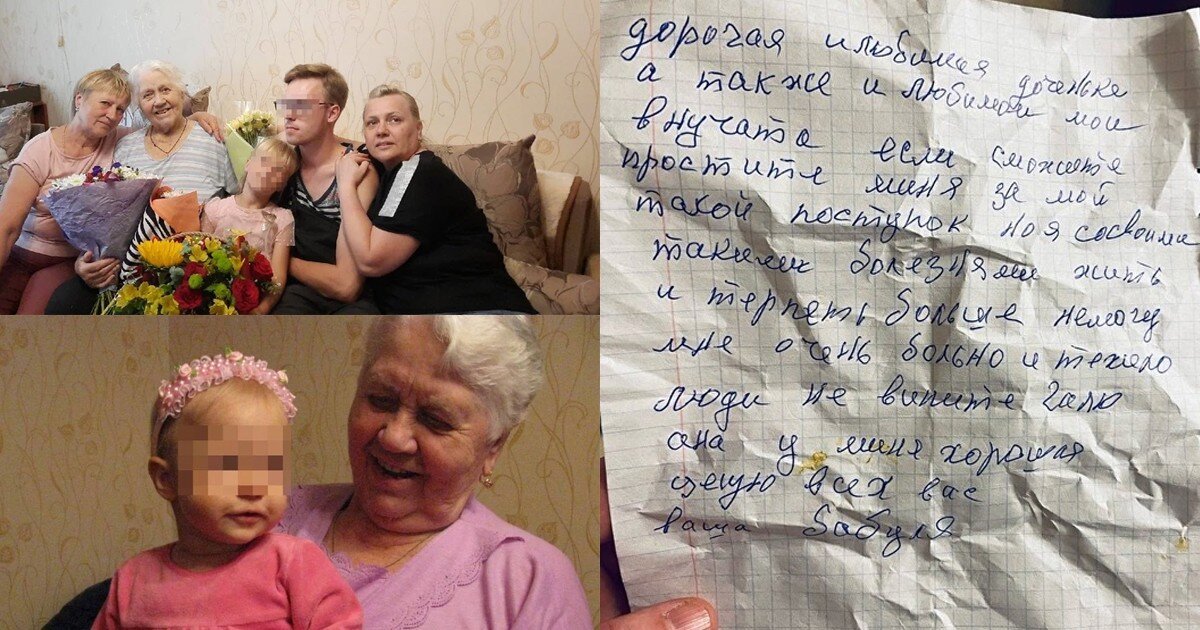 дорогая и любимая доченька
а также и любимаи мои
внучата если сможете
простите меня за мой
такой поступок но я сосвоима
такими болезнями жить
и терпеть больше немогу
мне очень больно и тежило
люди не вините Галю
она у меня хорошая
целую всех вас
ваша бабуля